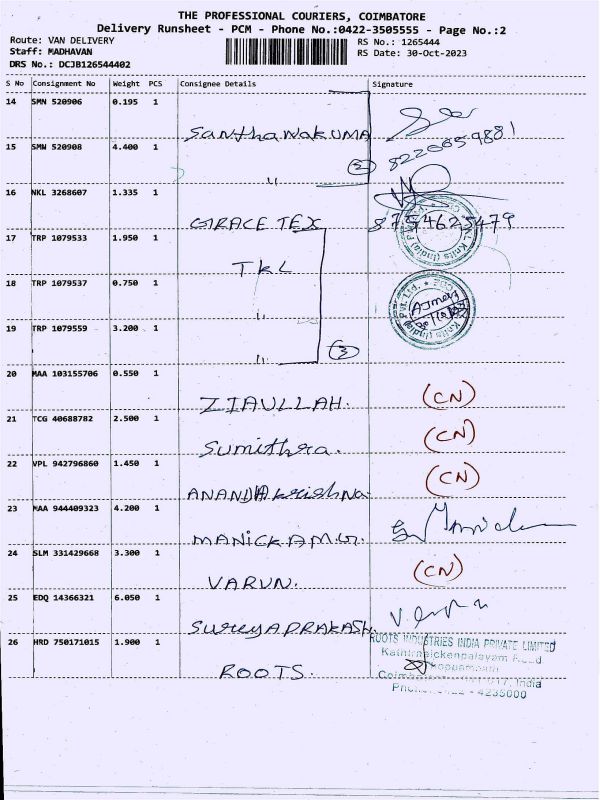 THE PROFESSIONAL COURIERS, COIMBATORE
Delivery Runsheet - PCM - Phone No.:0422-3505555 - Page No.:2
Route: VAN DELIVERY
RS No.: 1265444
Staff: MADHAVAN
RS Date: 30-Oct-2023
DRS No.: DCJB126544402
S No Consignment No Weight PCS Consignee Details Signature
14 SMN 520906 0.195 1
SanthaNakUMA
8220659881
15 SMN 520908 4.400 1
2
16 NKL 3268607 1.335 1
GRACE TEX 8754625479
17 TRP 1079533 1.950 1
TKL
18 TRP 1079537 0.750 1
19 TRP 1079559 3.200 1
3
20 MAA 103155706 0.550 1
ZIAULLAH. (CN)
21 TCG 40688782 2.500 1
Sumithra. (CN)
22 VPL 942796860 1.450 1
ANANDHAkrishNa (CN)
23 MAA 944409323 4.200 1
MANICKAM.
24 SLM 331429668 3.300 1
VARUN. (CN)
25 EDQ 14366321 6.050 1
SureyAPRAKASH.
26 HRD 750171015 1.900 1
ROOTS.
ROOTS INDUSTRIES INDIA PRIVATE LIMITED
Kathirnaickenpalayam Road
Thoppampatti
India
4235000